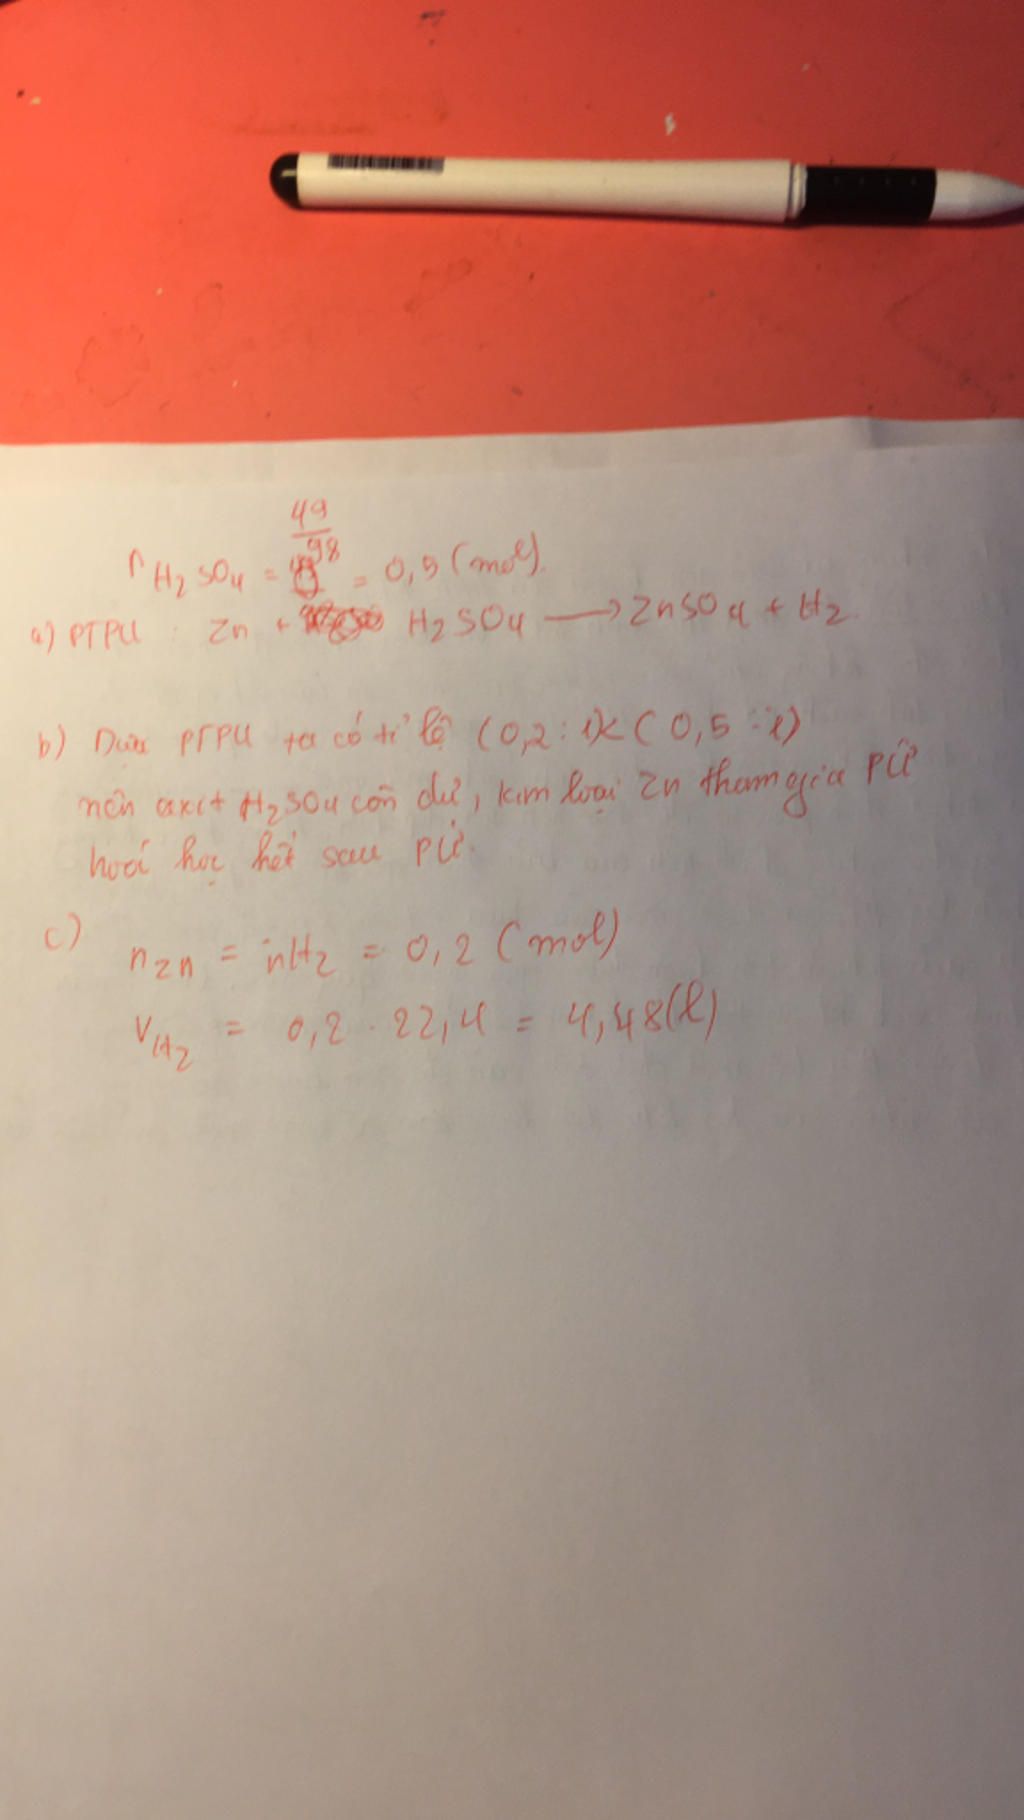 49
98
n H2SO4 = = 0,5 (mol).
a) PTPU : Zn + H2SO4 → ZnSO4 + H2.
b) Dựa PTPU ta có tỉ lệ (0,2 : 1) < ( 0,5 : 1)
nên axit H2SO4 còn dư, kim loại Zn tham gia PƯ
hoá học hết sau PƯ.
c)
nZn = nH2 = 0,2 (mol)
VH2 = 0,2 . 22,4 = 4,48(l)